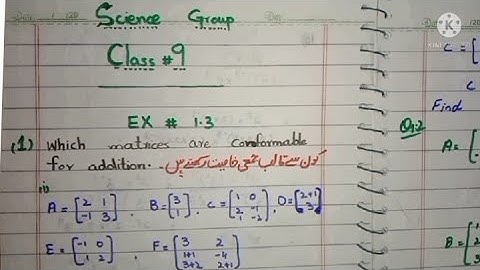 Science Group
Class #9
EX # 1.3
(1) Which matrices are conformable
for addition. کون سے قالب جمعی خاصیت رکھتے ہیں
(i)
A = [2 1; -1 3], B = [3; 1], C = [1 0; 2 -1; 1 -2], D = [2+1; 3]
E = [-1 0; 1 2], F = [3 2; 1+1 -4; 3+2 2+1]
C =
C
Find
Q.2
A =
B =
KINE